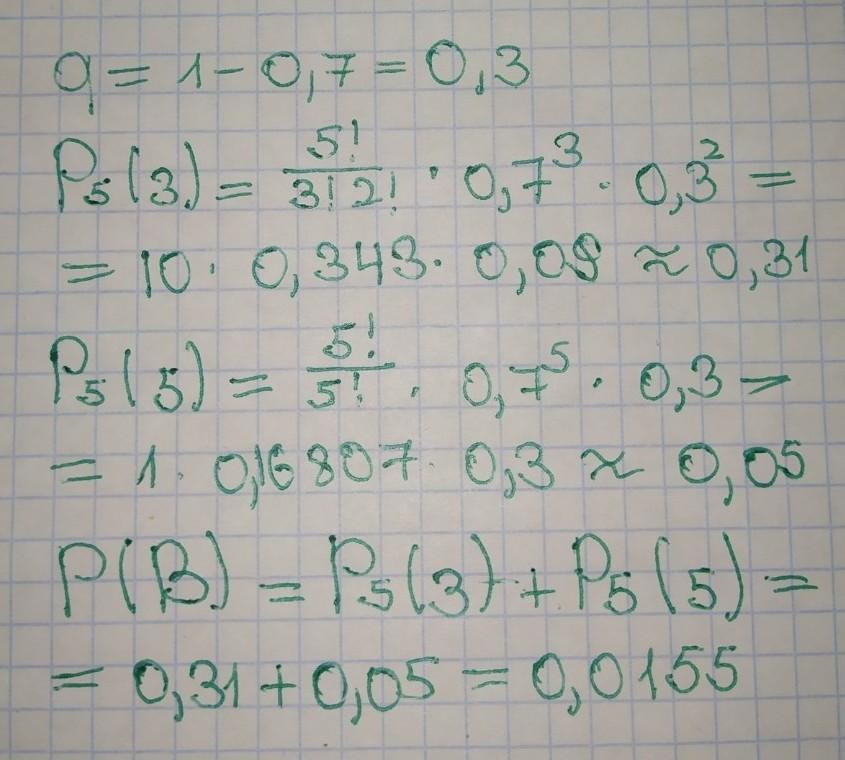 q = 1 - 0,7 = 0,3
P₅(3) = 5!/3!2! · 0,7³ · 0,3² =
= 10 · 0,343 · 0,09 ≈ 0,31
P₅(5) = 5!/5! · 0,7⁵ · 0,3 =
= 1 · 0,16807 · 0,3 ≈ 0,05
P(B) = P₅(3) + P₅(5) =
= 0,31 + 0,05 = 0,0155